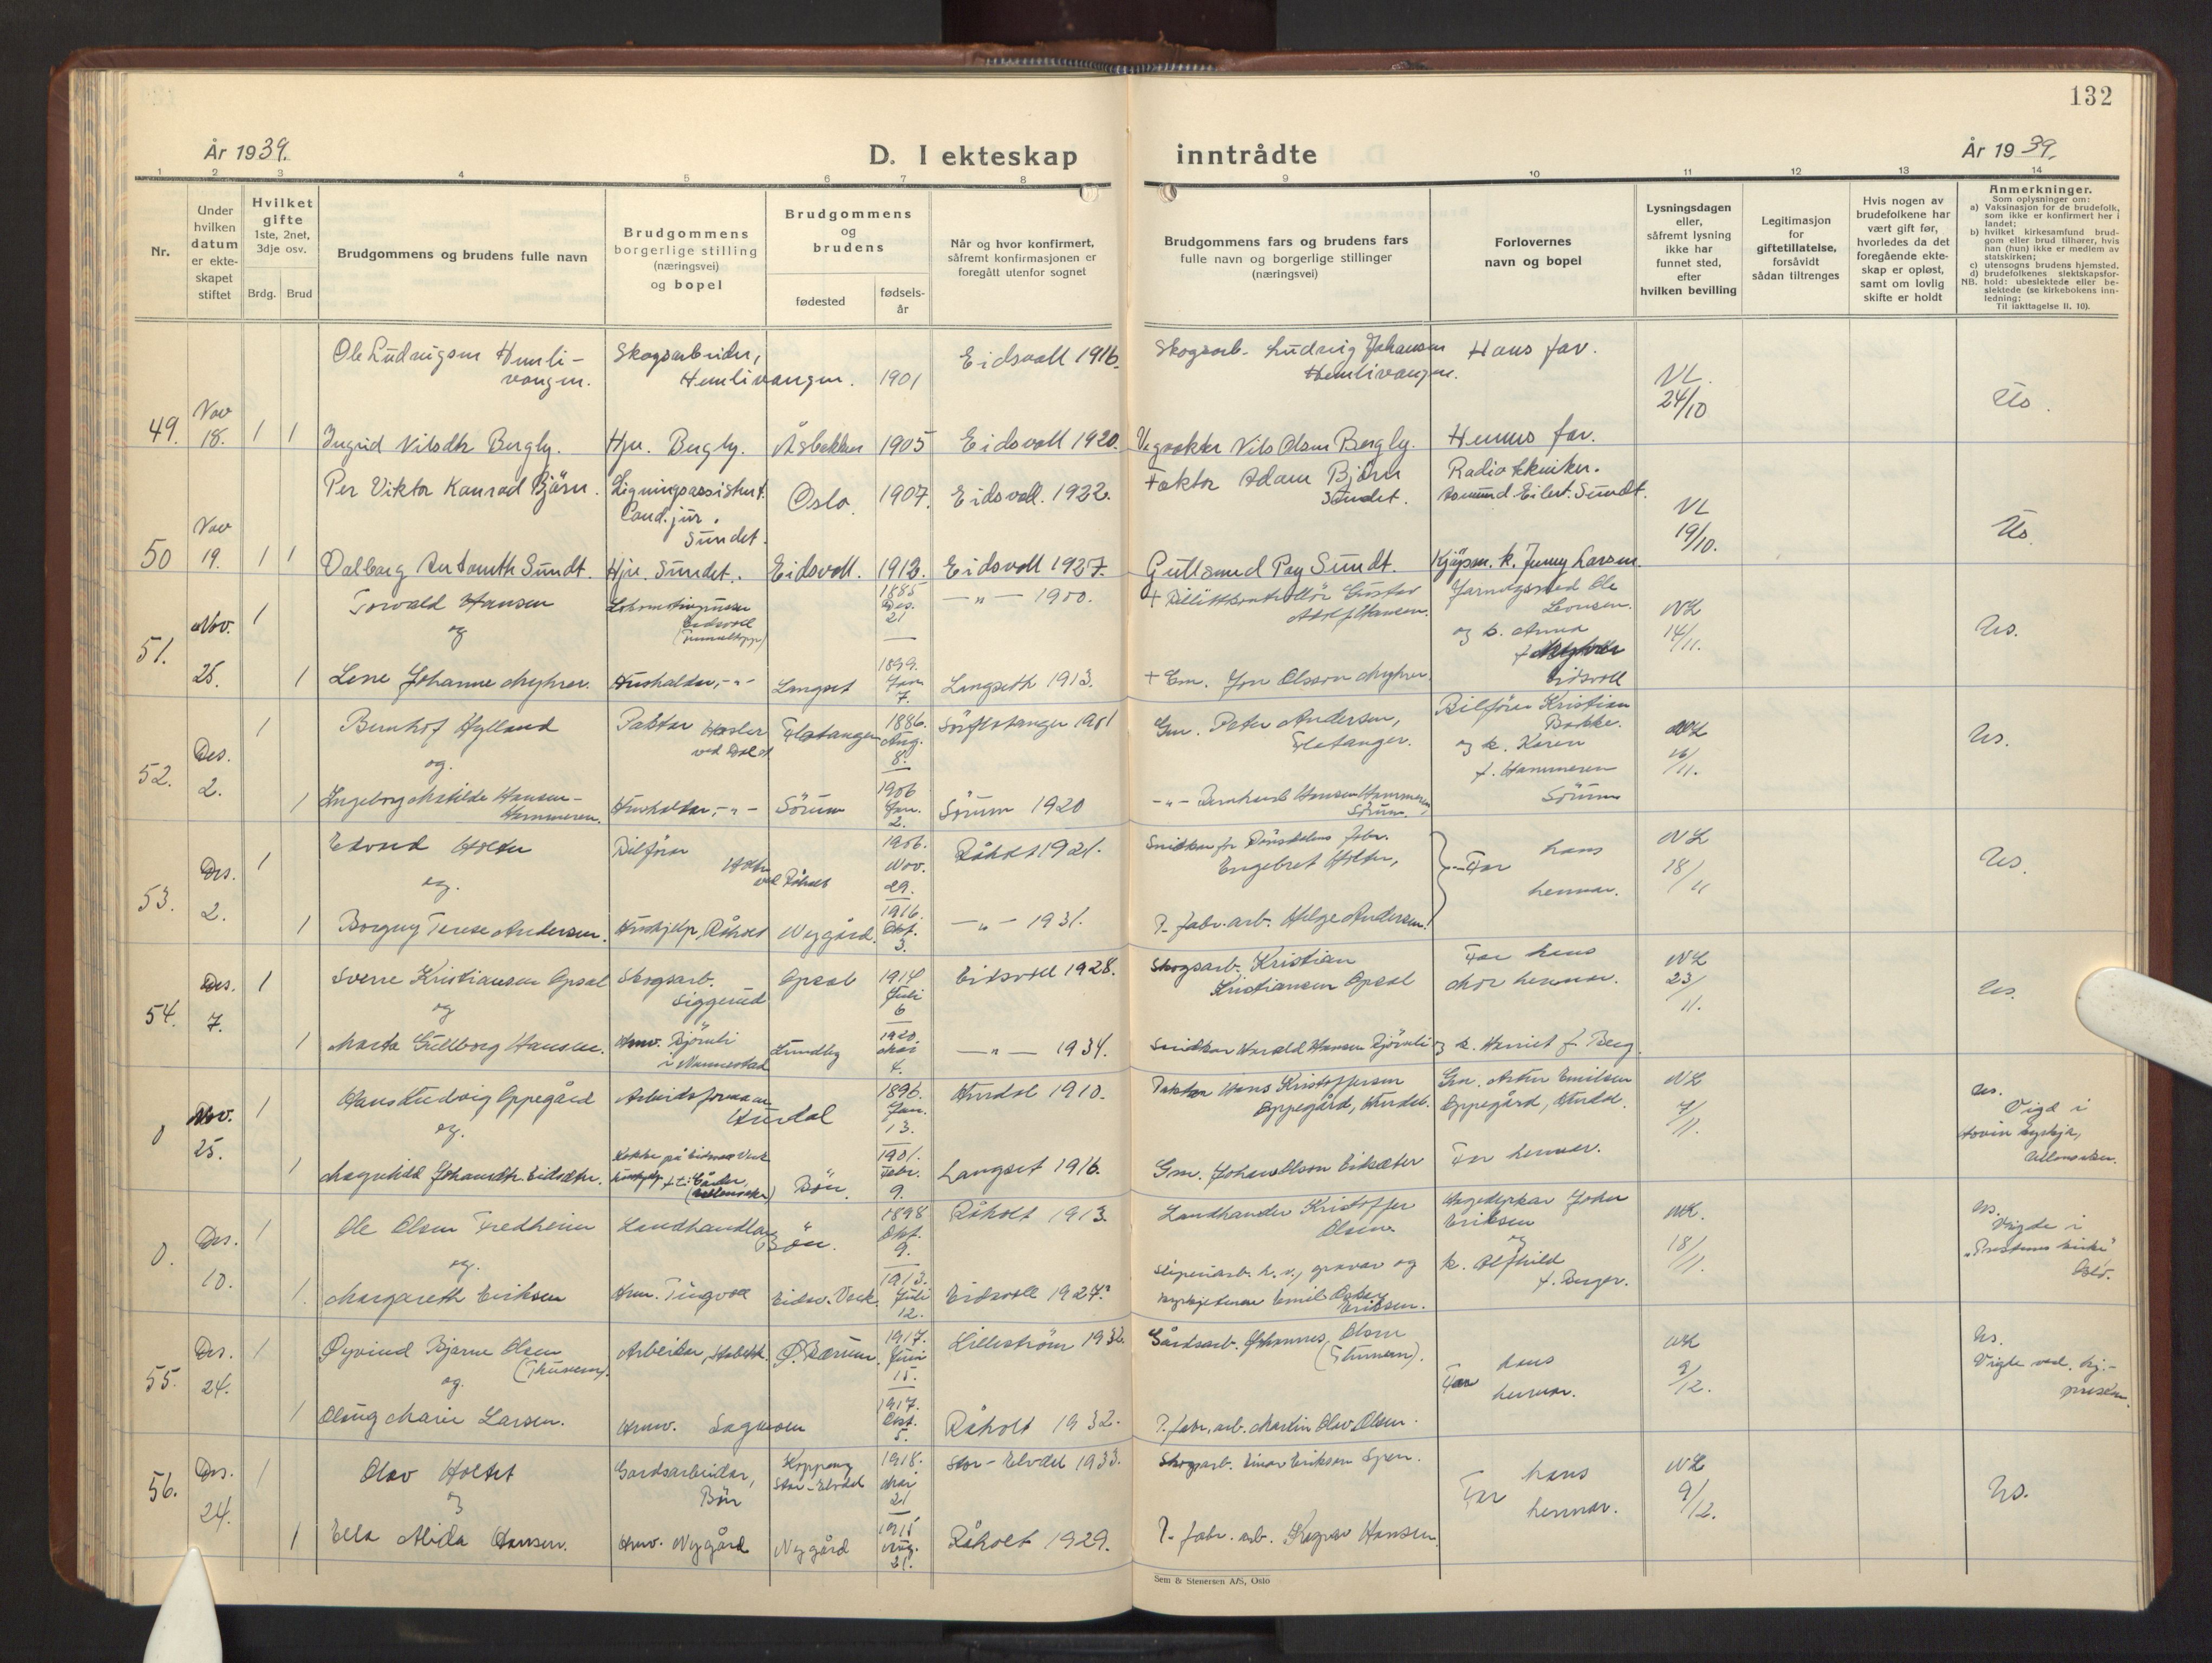 132
År 1939.
D. I ekteskap
inntrådte
År 1939.
1 2 3 4 5 6 7 8 9 10 11 12 13 14
Nr.
Under hvilken datum er ekte-skapet stiftet
Hvilket gifte 1ste, 2net, 3dje osv.
Brdg. Brud
Brudgommens og brudens fulle navn
Brudgommens borgerlige stilling (næringsvei) og bopel
Brudgommens og brudens
fødested
fødsels-år
Når og hvor konfirmert, såfremt konfirmasjonen er foregått utenfor sognet
Brudgommens fars og brudens fars fulle navn og borgerlige stillinger (næringsvei)
Forlovernes navn og bopel
Lysningsdagen eller, såfremt lysning ikke har funnet sted, efter hvilken bevilling
Legitimasjon for giftetillatelse, forsåvidt sådan tiltrenges
Hvis nogen av brudefolkene har vært gift før, hvorledes da det foregående ekte-skap er opløst, samt om lovlig skifte er holdt
Anmerkninger.
Som oplysninger om:
a) Vaksinasjon for de brudefolk, som ikke er konfirmert her i landet;
b) hvilket kirkesamfund brud-gom eller brud tilhører, hvis han (hun) ikke er medlem av statskirken;
c) utensogns brudens hjemsted.
d) brudefolkenes slektskapsfor-hold: ubeslektede eller be-slektede (se kirkebokens inn-ledning;
NB.
Til iakttagelse ll. 10).
Ole Ludvigsen Hemli-vangen. Skogsarbeider, Hemlivangen. 1901 Eidsvoll 1916. Skogsarb. Ludvig Johansen Hemlivangen. Hans far.
49. Nov 18. 1 1 NL 24/10 Us.
Ingrid Nilsdtr Bergly. Hju. Bergly. Åsbekken 1905 Eidsvoll 1920. Vegvokter Nils Olsen Bergly. Hennes far.
Per Viktor Konrad Björn. Ligningsassistent. Cand. jur. Sundet. Oslo 1907. Eidsvoll. 1922. Faktor Adam Björn Sundet. Radiotekniker. Asmund Eilert Sundt.
50 Nov 19. 1 1 NL 19/10. Us
Valborg Sundt. Hju. Sundet. Eidsvoll. 1912. Eidsvoll 1927. Gullsmed Sundt. Kjøpm. k. Jenny Larsen.
Torvald Hansen Eidsvoll 1885 Des. 21 —"— 1900. + Billettkontrollör Gustav Adolf Hansen. Ole
51. Nov. 25. 1 og NL 14/11. Us.
1 Lene Johanne Myhrer. Husholder, -"- Langset 1899. Jan 7. Langseth 1913. + Em. Jon Olsson Myhrer. og k. Anna f. Eidsvoll
1 Bernhof Hylland Pastor Hasler ved Oslo Flatanger 1886. Aug. 8. 1901 Gm. Peter Andersen, Flatanger. Bilfører Kristian Bakke.
52. Des. 2. og. og k. Karen f. Hammeren Sörum NL 16/11. Us.
1 Ingeborg Matilde Hansen-Hammeren. Husholder, -"- Sörum 1906 Jan. 2. Sörum 1920 -"- Bernhard Hansen Hammeren Sörum.
1 Edvard Holter Bilförer Holter ved Råholt 1906. Nov. 29. Råholt 1921. Engebret Holter,
53. Des. 2. og. Far hans hennar. NL 18/11 Us.
1 Borgny Terese Andersen. Hushjelp, Råholt Nygård. 1916. Okt. 3. —"— 1931. P. fabr. arb. Helge Andersen.
1 Sverre Kristiansen Opsal Skogsarb. Siggerud Opsal 1914 Juli 6 Eidsvoll 1928. Skogsarb. Kristian Kristiansen Opsal Far hans
54. Des. 7. og Mor hennar. NL 23/11. Us.
1 Marta Gullborg Hansen. Hmv. Björnli i Nannestad Lundby 1920. Mai 4. —"— 1934. Snidkar Harald Hansen Björnli og k. Harriet f. Berg.
1 Hans Ludvig Oppegård Arbeidsformann Hurdal 1896. Jan. 13. Hurdal 1910. Hans Kristoffersen Oppegård, Hurdal. Gm. Artur Emilsen Oppegård, Hurdal.
0 Nov. 25. og. NL 7/11. Us. Vigd i Hovin kyrkja, Ullensaker.
1 Magnhild Johansdtr. Eidsæter. Bön. 1901. Febr. 9. Langset 1916. Gm. Johan Olson Eidsæter Far hennar.
1 Ole Olsen Fredheim Landhandlar Bön. 1898 Okt. 9. Råholt 1913. Landhandler Kristoffer Olsen. John Eriksen
0. Des. 10. og. og k. Alfhild f. Berger. NL. 18/11. Us. Vigde i Oslo.
1. Margareth Eriksen Hmv. Tingvoll Eidsv. Verk. 1913. Juli 12. Eidsvoll 1927. Sliperiarb. h. v., gravar og kyrkjetenar Emil Oskar Eriksen.
1 Øyvind Bjarne Olsen (Thuren). Arbeider, Habekk. Ø. Bærum. 1917. Juni 15. Lilleström 1932. Gårdsarb. Johannes Olsen
55. Des. 24. og. Far hans hennar. NL 9/12. Us. Vigde ved
1 Olaug Marie Larsen. Hmv. Sagmoen 1917. Okt. 5. Råholt 1932. P. fabr. arb. Martin Olav Olsen.
1 Olav Holtet Gardsarbeider, Bön Koppang Stor-Elvdal 1918. Mai 21 Stor-Elvdal 1933. Skogsarb. Einar Eriksen
56. Des. 24. og Far hans hennar. NL 9/12. Us.
1 Ella Alida Hansen. Hmv. Nygård Nygård 1915 Aug. 21. Råholt 1929. P. fabr. arb. Hansen
Sem & Stenersen A/S, Oslo